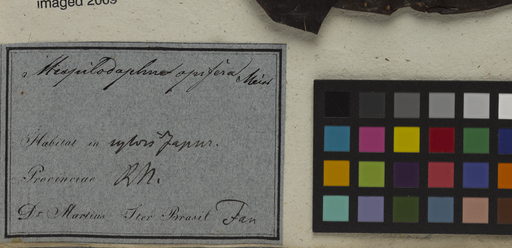 imaged 2009
Mespilodaphne opifera Meisn
Habitat in sylvis Japur.
Provinciae R. N.
Dr. Martius Iter Brasil Jan